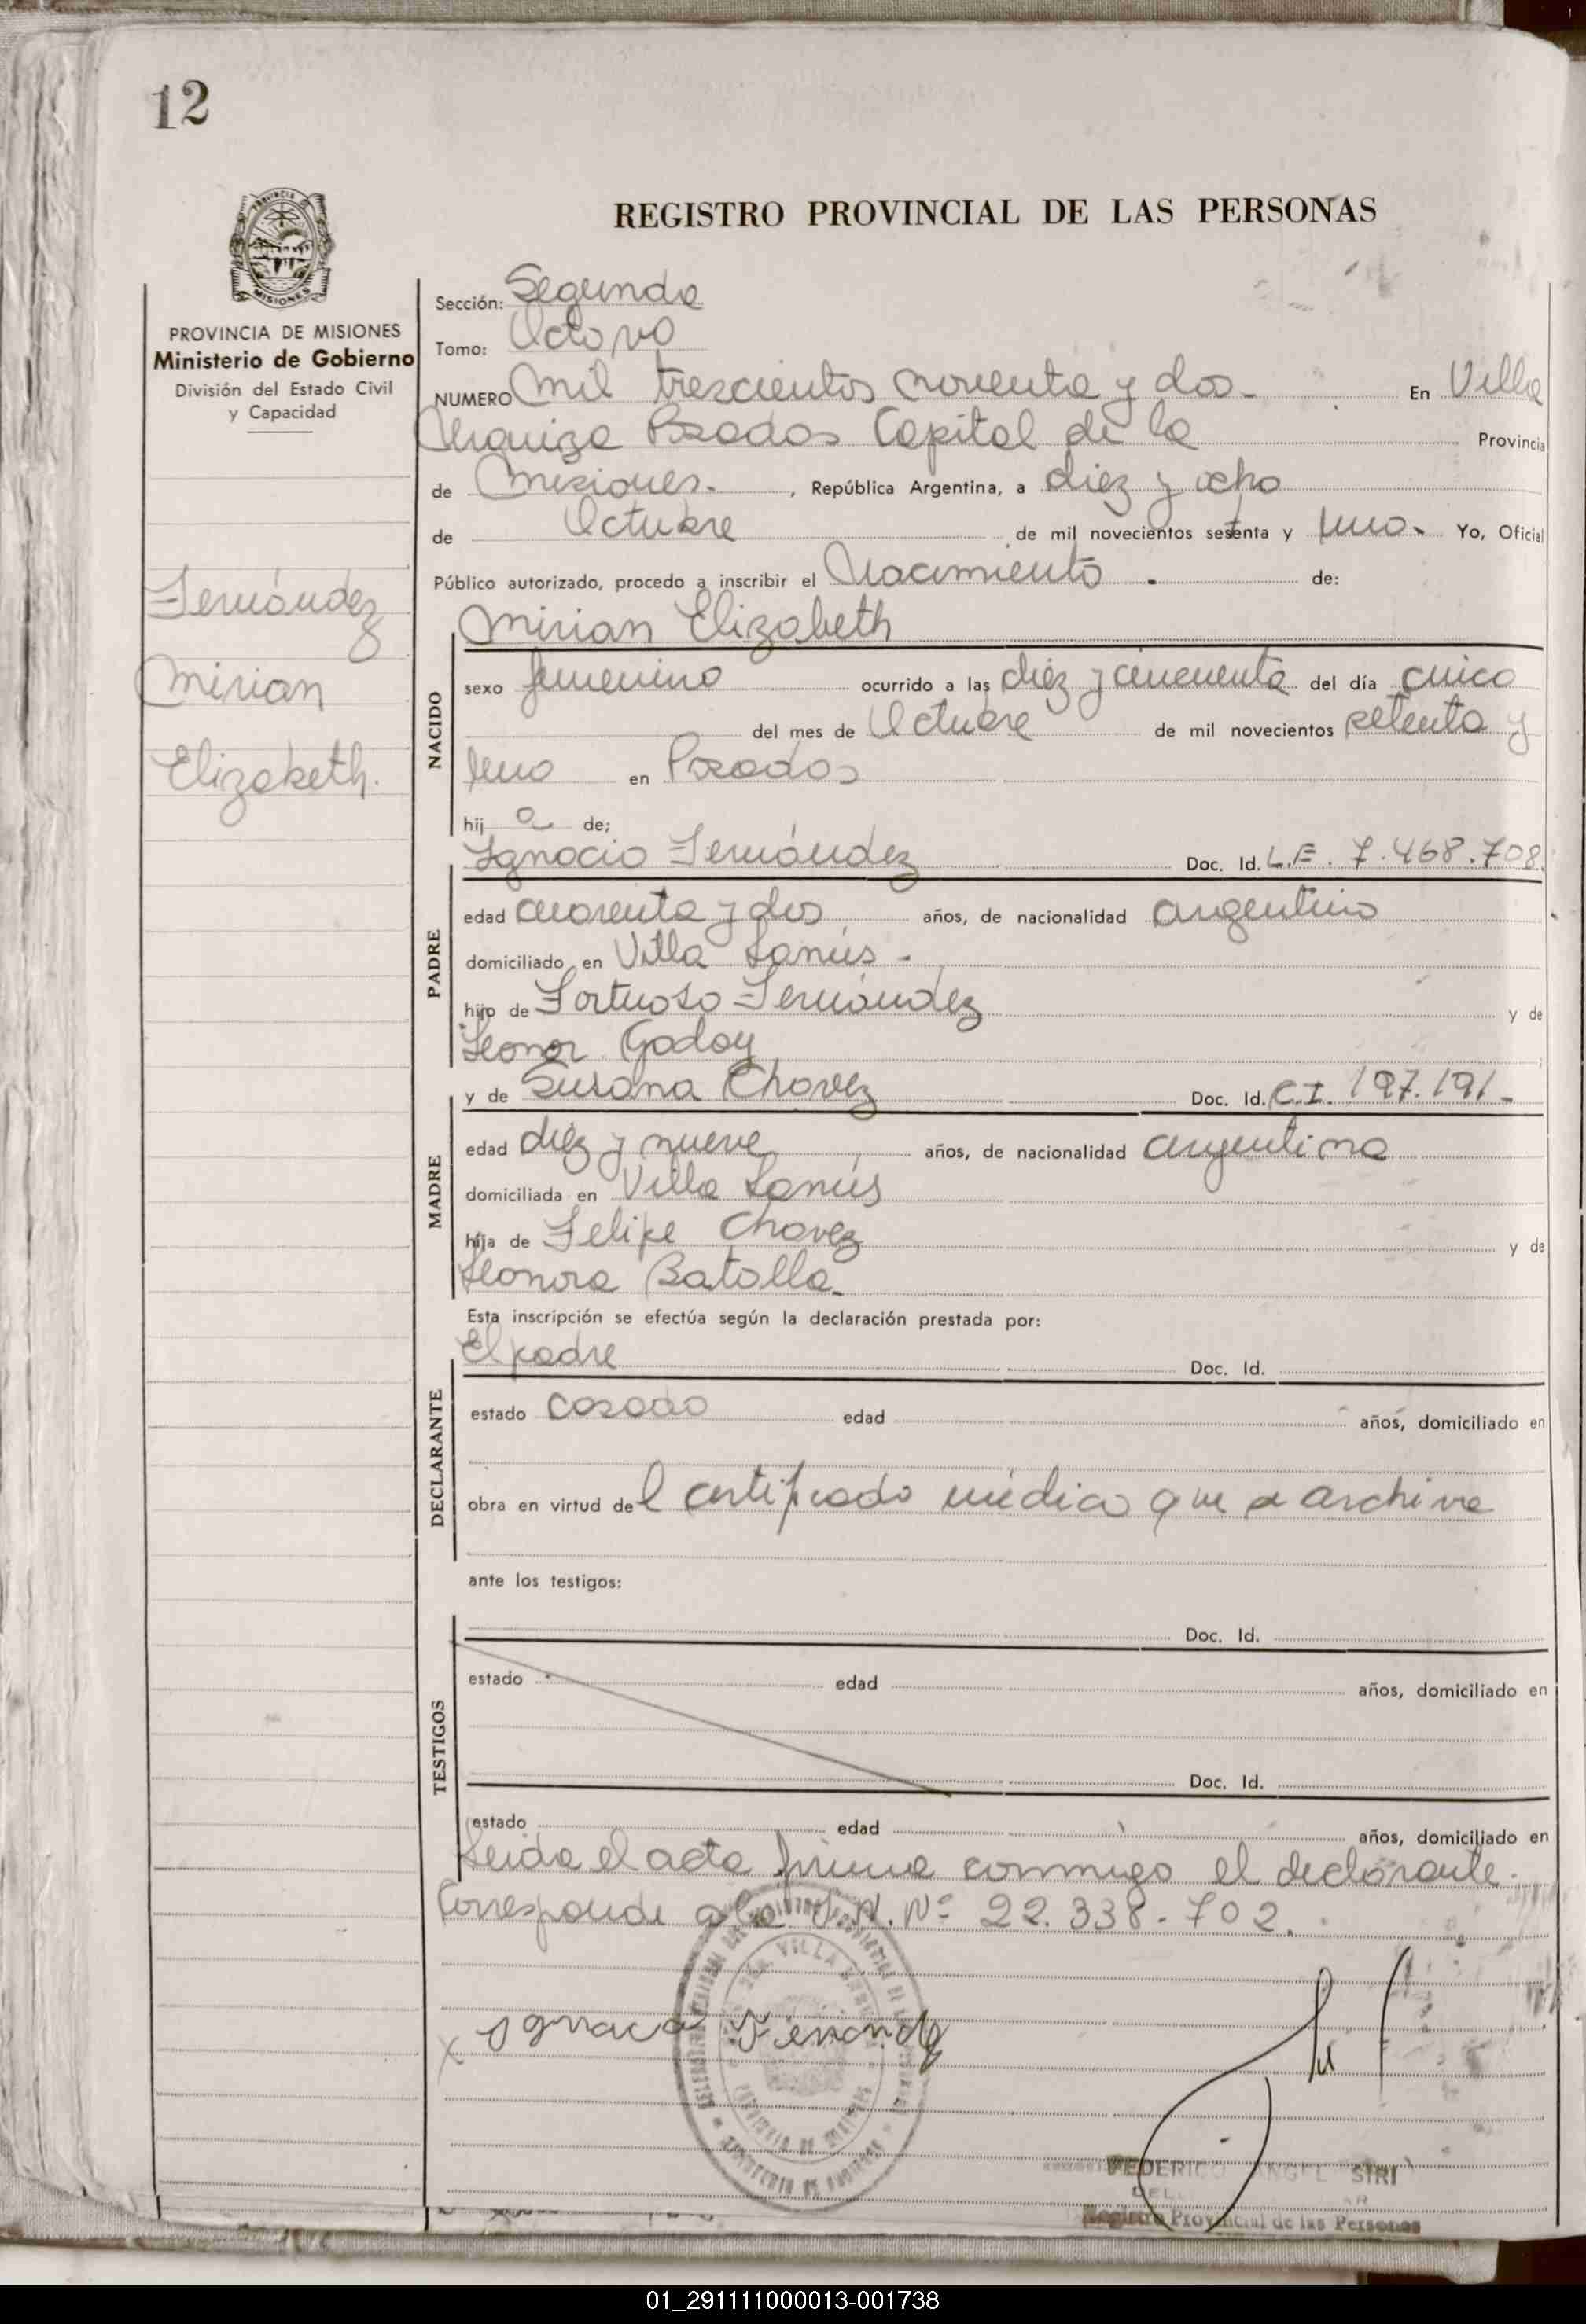 12
REGISTRO PROVINCIAL DE LAS PERSONAS
PROVINCIA DE MISIONES
Ministerio de Gobierno
División del Estado Civil
y Capacidad
Fernández
Mirian
Elizabeth.
Sección: Segunda
Tomo: Octavo
NUMERO Mil trescientos noventa y dos. En Villa
Urquiza Posadas Capital de la Provincia
de Misiones. , República Argentina, a diez y ocho
de Octubre de mil novecientos setenta y uno. Yo, Oficial
Público autorizado, procedo a inscribir el Nacimiento . de:
Mirian Elizabeth
NACIDO
sexo femenino ocurrido a las diez y cincuenta del día cinco
del mes de Octubre de mil novecientos setenta y
uno en Posadas
hij a de:
Ignacio Fernández Doc. Id. L.E. 7.468.708.
PADRE
edad cuarenta y dos años, de nacionalidad argentino
domiciliado en Villa Lanús .
hijo de Fortuoso Fernández y de
Leonor Godoy
y de Susana Chavez Doc. Id. C.I. 197.191-
MADRE
edad diez y nueve años, de nacionalidad argentina
domiciliada en Villa Lanús
hija de Felipe Chavez y de
Leonora Batalla.
Esta inscripción se efectúa según la declaración prestada por:
El padre Doc. Id.
DECLARANTE
estado casado edad años, domiciliado en
obra en virtud del certificado médico que se archiva
ante los testigos:
Doc. Id.
TESTIGOS
estado edad años, domiciliado en
Doc. Id.
estado edad años, domiciliado en
Leida el acta firma conmigo el declarante.
Corresponde a la I.N. Nº 22.338.702.
x Ignacio Fernandez
FEDERICO ANGEL SIRI
Registro Provincial de las Personas
01_291111000013-001738